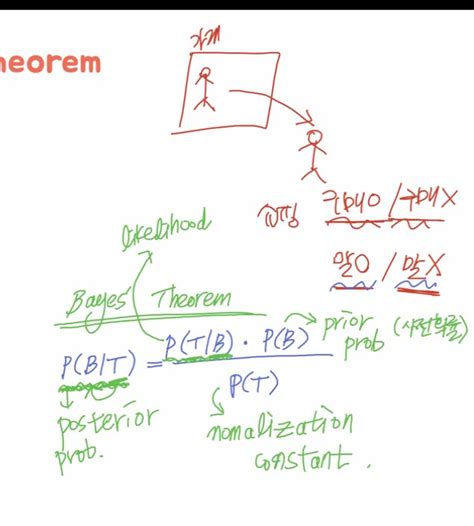 heorem
가게
매장 구매O / 구매X
말O / 말X
likelihood
Bayes' Theorem
P(B|T) = P(T|B) · P(B)
P(T)
prior prob (사전확률)
posterior prob.
nomalization constant.